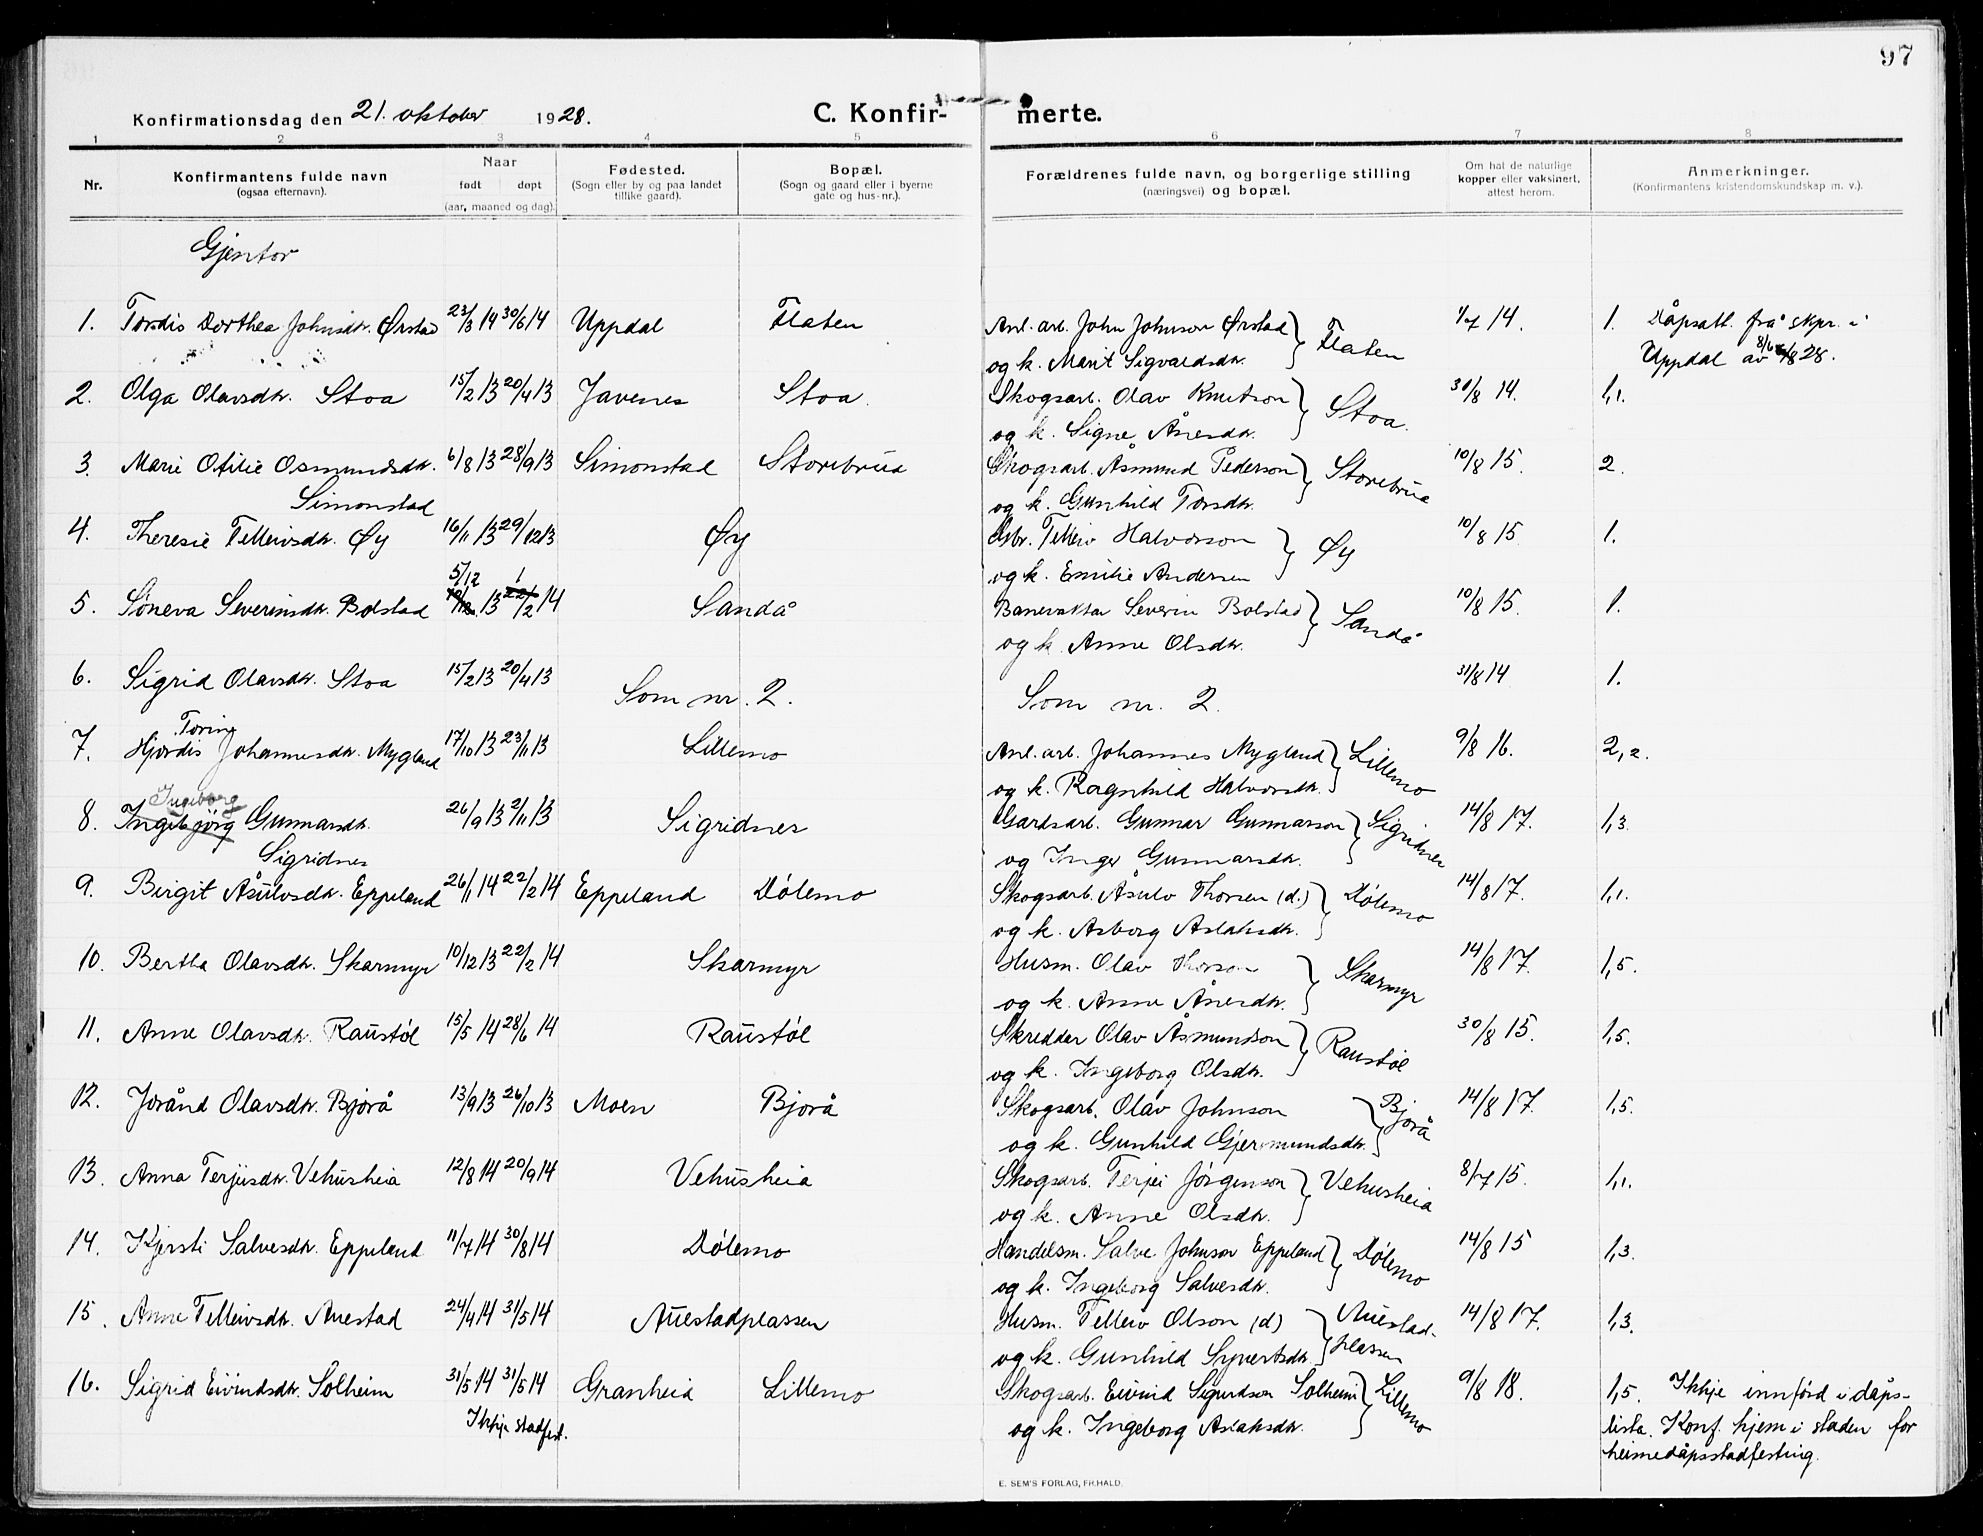 97
Konfirmationsdag den 21. oktober 1928. C. Konfir- merte.
1 2 3 4 5 6 7 8
Nr. Konfirmantens fulde navn (ogsaa efternavn). Naar født døpt (aar, maaned og dag). Fødested. (Sogn eller by og paa landet tillike gaard). Bopæl. (Sogn og gaard eller i byerne gate og hus-nr.). Forældrenes fulde navn, og borgerlige stilling (næringsvei) og bopæl. Om hat de naturlige kopper eller vaksinert, attest herom. Anmerkninger. (Konfirmantens kristendomskundskap m. v.).
Gjentor
1. Tordis Dorthea Johnsdtr. Ørstad 23/3 14 30/6 14 Uppdal Flaten Anl. arb. John Johnson Ørstad } Flaten 1/7 14. 1. Dåpsatt. frå skpr. i
og k. Marit Sigvaldsdtr. Uppdal av 8/6 28.
2. Olga Olavsdtr. Stoa 15/2 13 20/4 13 Javenes Stoa. Skogsarb. Olav Knutson } Stoa. 30/8 14. 1,1.
og k. Signe Ånesdtr.
3. Marie Otilie Osmundsdtr. 6/8 13 28/9 13 Simonstad Storebrua Skogsarb. Åsmund Pederson } Storebrua 10/8 15. 2.
Simonstad og k. Gunhild Torsdtr.
4. Theresie Tellevsdtr. Øy 16/11 13 29/12 13 Øy Gbr. Tellev Halvorson } Øy 10/8 15 1.
og k. Emilie Andersen
5/12 1
5. Søneva Severinsdtr. Bolstad 13 22/2 14 Sandå Banevaktar Severin Bolstad } Sandå 10/8 15. 1.
og k. Anne Olsdtr.
6. Sigrid Olavsdtr. Stoa 15/2 13 20/4 13 Som nr. 2. Som nr. 2. 31/8 14 1.
Torine
7. Hjordis Johannesdtr. Mygland 17/10 13 23/11 13 Lillemo Anl. arb. Johannes Mygland } Lillemo 9/8 16. 2,2.
og k. Ragnhild Halvorsdtr.
Ingeborg
8. Ingebjörg Gunnarsdtr. 26/9 13 2/11 13 Sigridnes Gardsarb. Gunnar Gunnarson } Sigridnes 14/8 17. 1,3.
Sigridnes og Inger Gunnarsdtr.
9. Birgit Åsulvsdtr. Eppeland 26/1 14 22/2 14 Eppeland Dölemo Skogsarb. Åsulv Thorsen (d.) } Dölemo 14/8 17. 1,1.
og k. Asborg Aslaksdtr.
10. Bertha Olavsdtr. Skarmyr 10/12 13 22/2 14 Skarmyr Husm. Olav Thorson } Skarmyr 14/8 17. 1,5.
og k. Anne Ånesdtr.
11. Anne Olavsdtr. Raustöl 15/5 14 28/6 14 Raustöl Skreddar Olav Åsmundson } Raustöl 30/8 15. 1,5.
og k. Ingeborg Olsdtr.
12. Jorånd Olavsdtr. Bjorå 13/9 13 26/10 13 Moen Bjorå Skogsarb. Olav Johnson } Bjorå 14/8 17. 1,5.
og k. Gunhild Gjermundsdtr.
13. Anna Terjeisdtr. Vehusheia 12/8 14 20/9 14 Vehusheia Skogsarb. Terjei Jörgenson } Vehusheia 8/7 15. 1,1.
og k. Anne Olsdtr.
14. Kjersti Salvesdtr. Eppeland 11/7 14 30/8 14 Dölemo Handelsm. Salve Johnson Eppeland } Dölemo 14/8 15 1,3.
og k. Ingeborg Salvesdtr.
15. Anne Tellevsdtr. Auestad 24/4 14 31/5 14 Auestadplassen Husm. Tellev Olson (d) } Auestad- 14/8 17. 1,3.
og k. Gunhild Syvertsdtr. plassen
16. Sigrid Eivindsdtr. Solheim 31/5 14 31/5 14 Granheia Lillemo Skogsarb. Eivind Sigurdson Solheim } Lillemo 9/8 18. 1,5. Ikkje innförd i dåps-
Ikkje stadfest. og k. Ingeborg Aslaksdtr. lista. Konf. hjem i staden for
heimedåpsstadfesting.
E. SEM'S FORLAG, FR.HALD.